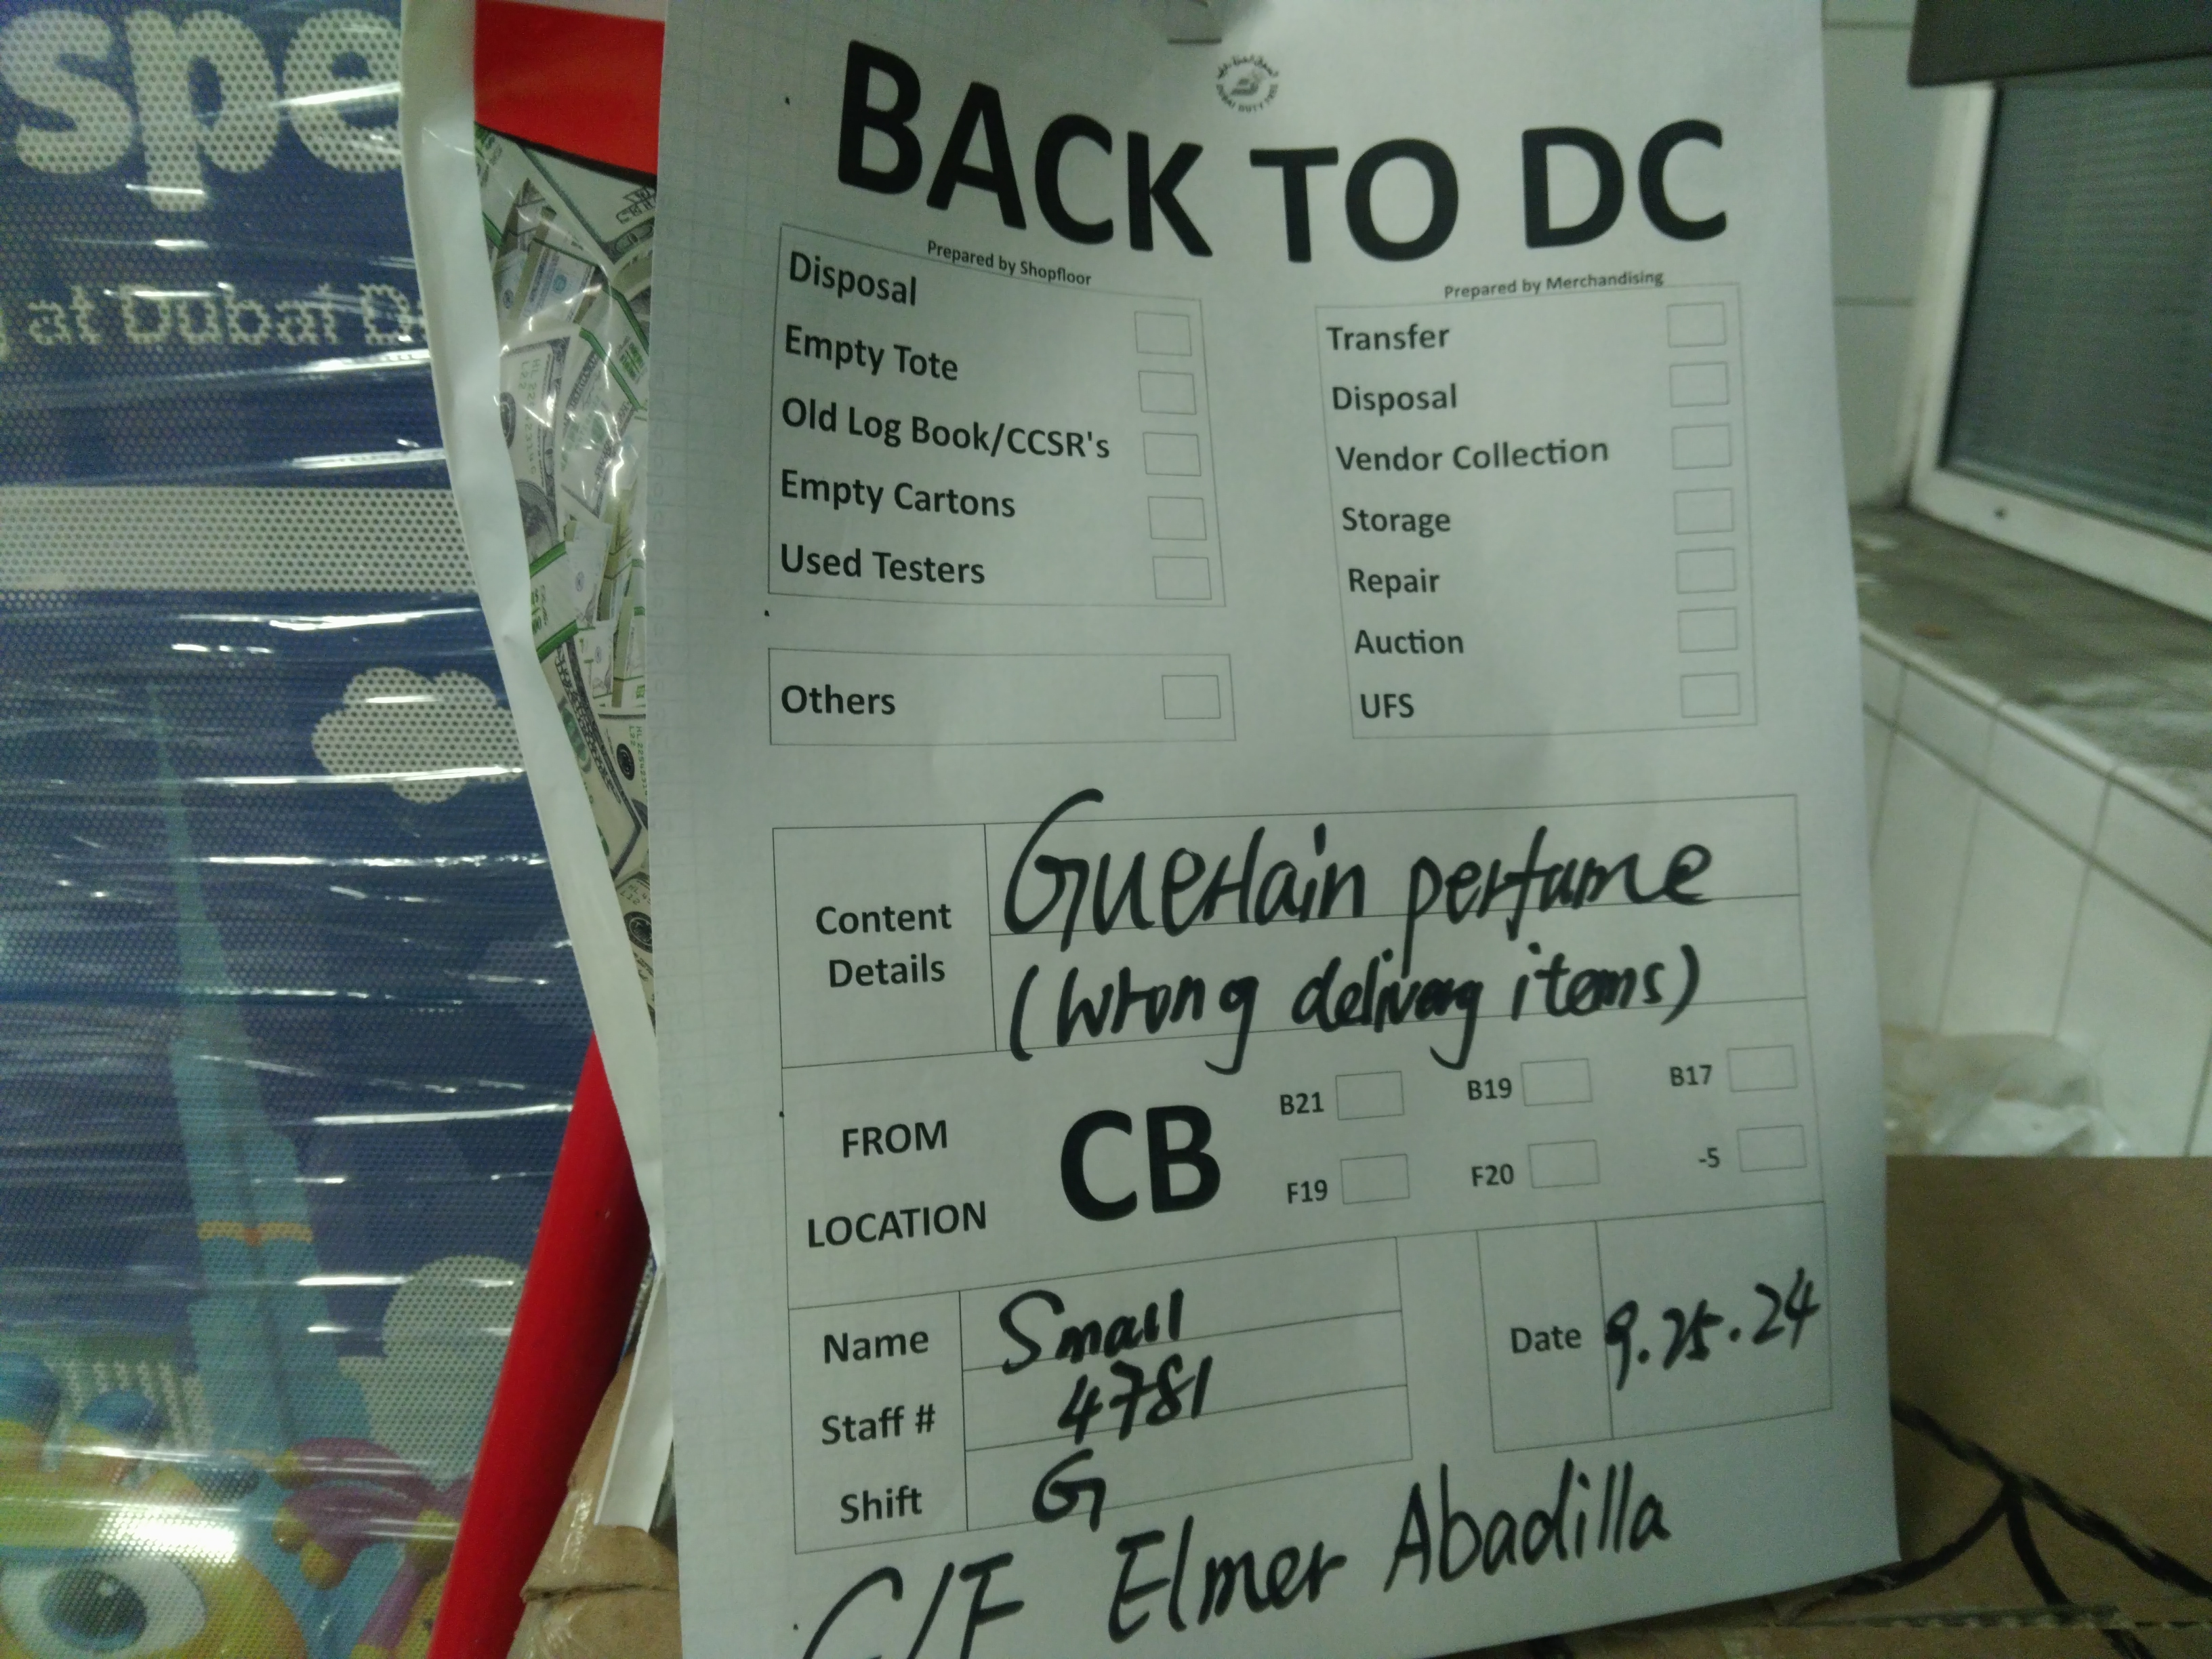 spe
at Dubai D
BACK TO DC
Prepared by Shopfloor
Disposal
Empty Tote
Old Log Book/CCSR's
Empty Cartons
Used Testers
Others
Prepared by Merchandising
Transfer
Disposal
Vendor Collection
Storage
Repair
Auction
UFS
Content Details
Guerlain perfume
(Wrong delivery items)
FROM LOCATION
CB
B21 B19 B17
F19 F20 -5
Name Small
Staff # 4781
Shift G
Date 9.25.24
C/F Elmer Abadilla